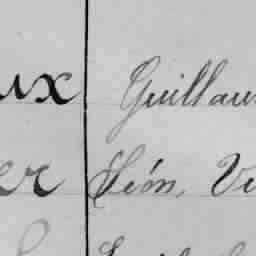 ux Guillau
er Léon, Vi